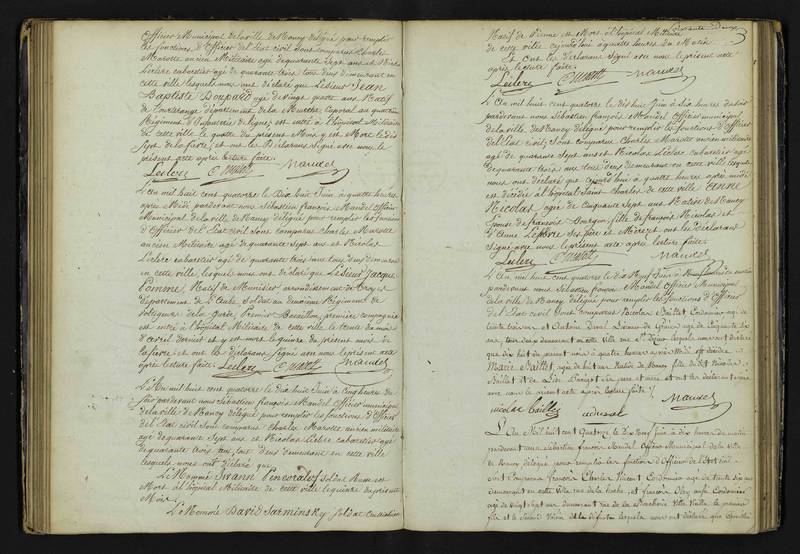 officier Municipal de la ville de Nancy délégué pour remplir
les fonctions d'Officier de l'Etat civil Sont comparus Charle
Marotte ancien Militaire agé de quarante Sept ans et Nicolas
Leclere cabaretier agé de quarante trois tous deux demeurant en
cette ville lesquels nous ont déclaré que Lesieur Jean
Baptiste agé de vingt quatre ans Natif
de département de la Meurthe Caporal au quatrième
Régiment d'Infanterie de ligne est entré à l'hôpital Militaire
de cette ville le quatre du présent Mois y est Mort le dix
Sept de la fievre, et ont les Déclarans Signé avec nous le
présent acte après lecture faite.
Leclere Marotte Mandel
L'An mil huit cent quatorze le Dix huit Juin à quatre heures
après Midi pardevant nous Sébastien françois Mandel Officier
Municipal de la ville de Nancy délégué pour remplir les fonctions
d'Officier de l'Etat civil Sont comparus Charles Marotte
ancien Militaire agé de quarante Sept ans et Nicolas
Leclere cabaretier agé de quarante trois ans tous deux demeurant
en cette ville, lesquels nous ont déclaré que Lesieur Jacque
Pomme, Natif de arrondissement de Troyes
département de L'Aube, Soldat au deuxième Régiment de
voltigeur de la Garde, premier Bataillon, première compagnie
est entré à l'hôpital Militaire de cette ville le trente du mois
d'avril dernier et y est mort le quinze du présent mois de
la fievre et ont les déclarans Signé avec nous le présent acte
après lecture faite. Leclere Marotte Mandel
L'An mil huit cent quatorze le dix huit Juin à cinq heures du
Soir pardevant nous Sébastien françois Mandel Officier municipal
de la ville de Nancy délégué pour remplir les fonctions d'Officier
de l'Etat civil Sont comparus Charles Marotte ancien militaire
agé de quarante Sept ans et Nicolas Leclere cabaretier agé
de quarante trois ans, tous deux demeurant en cette ville
lesquels nous ont déclaré que
Le Nommé Iwann Soldat Russe est
Mort à l'hôpital Militaire de cette ville le quinze du présent
Mois.
Le Nommé David Sarminsky Soldat
quarante Deux
Natif de Vienne est Mort à l'hôpital Militaire
de cette ville aujourd'hui à quatre heures du Matin
Et Ont les Déclarans Signé avec nous le présent acte
après lecture faite.
Leclere Marotte Mandel
L'An mil huit cent quatorze le dix huit Juin à Six heures du Soir
pardevant nous Sébastien françois Mandel Officier municipal
de la ville de Nancy délégué pour remplir les fonctions d'Officier
de l'Etat civil, Sont comparus Charles Marotte ancien militaire
agé de quarante Sept ans et Nicolas Leclere cabaretier agé
de quarante trois ans tous deux demeurant en cette ville, lesquels
nous ont déclaré que aujourd'hui à quatre heures après midi
est décédée à l'hôpital Saint Charles de cette ville Anne
Nicolas, agée de Cinquante Sept ans Native de Nancy
Epouse de françois Bourgon, fille de françois Nicolas et
d'Anne Lefebvre Ses père et Mère et ont les Déclarans
Signé avec nous le présent acte après lecture faite.
Leclere Marotte Mandel
L'An mil huit cent quatorze le dix Neuf Juin à heures du matin
pardevant nous Sébastien françois Mandel Officier Municipal
de la ville de Nancy délégué pour remplir les fonctions d'Officier
de l'Etat civil Sont comparus Nicolas Baillet Cordonnier agé de
trente ans et Antoine Duval agé de Cinquante
ans, tous deux demeurant en cette ville rue lesquels nous ont déclaré
que dix huit du présent mois à quatre heures après Midi est décédée
Marie Baillet, agée de huit ans Native de Nancy fille du dit Nicolas
Baillet et de Ses père et mère et ont les déclarans signé
avec nous le présent acte après lecture faite.
Nicolas Baillet Duval Mandel
L'An Mil huit Cent Quatorze le dix Neuf Juin à dix heures du matin
pardevant nous Sébastien françois Mandel Officier Municipal de la ville
de Nancy délégué pour remplir les fonctions d'Officier de l'Etat civil
Sont Comparus françois Charles Vincent Cordonnier agé de trente Six ans
demeurant en cette Ville rue de la , et françois Cordonnier
agé de vingt huit ans demeurant rue de la Ville Vieille le premier
et le Second Voisin de la défunte lesquels nous ont déclaré que